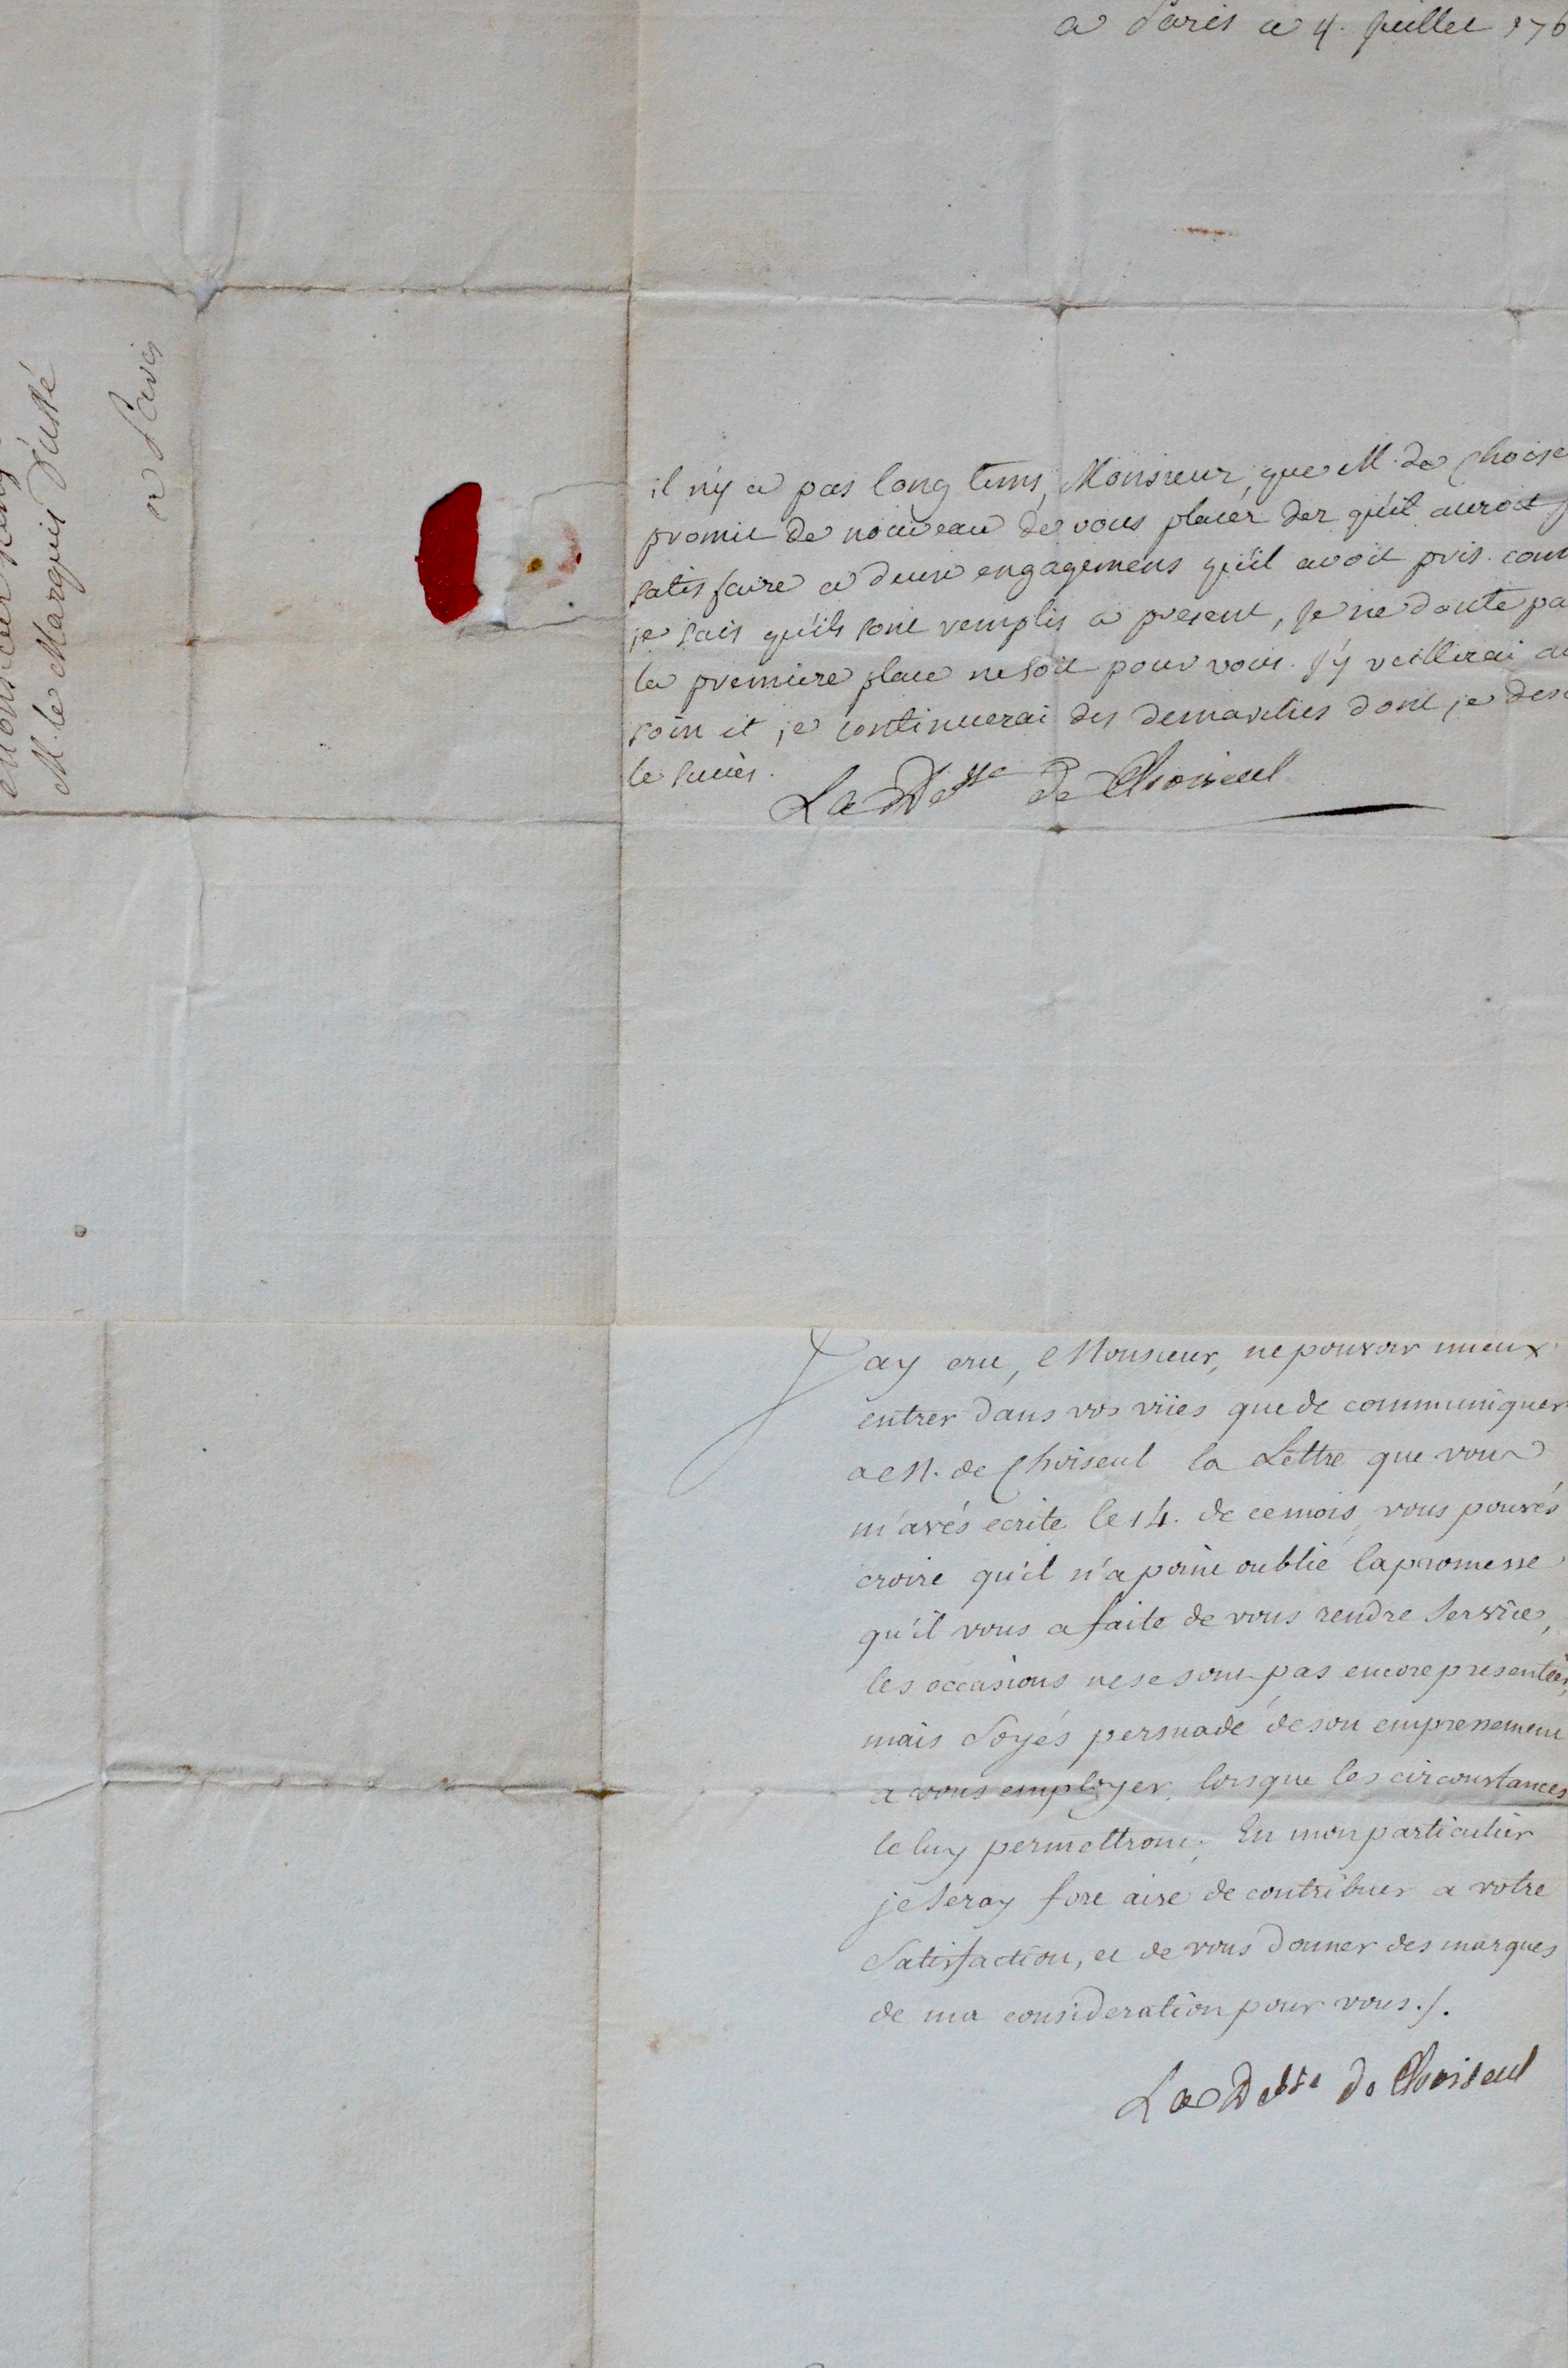 a Paris a 4. juillet 176
il n'y a pas long tems, Monsieur, que M. de Choise
promit de nouveau de vous placer des qu'il auroit
satisfaire a deux engagemens qu'il avoit pris. com
je sais qu'ils sont remplis a present, je ne doute pa
la premiere place ne soit pour vous. j'y veillerai
soin et je continuerai des demarches dont je des
le succès.
La Desse de Choiseul
M. le Marquis D'ussé
a Paris
Jay cru, Monsieur, ne pouvoir mieux
entrer dans vos vües que de communiquer
a M. de Choiseul la Lettre que vous
m'avés ecrite le 14. de ce mois, vous pouvés
croire qu'il n'a point oublié la promesse
qu'il vous a faite de vous rendre service,
les occasions ne se sont pas encore presentées,
mais Soyés persuadé de son empressement
a vous employer, lorsque les circonstances
le luy permettront. En mon particulier
je seray fort aise de contribuer a votre
Satisfaction, et de vous donner des marques
de ma consideration pour vous./.
La Desse de Choiseul